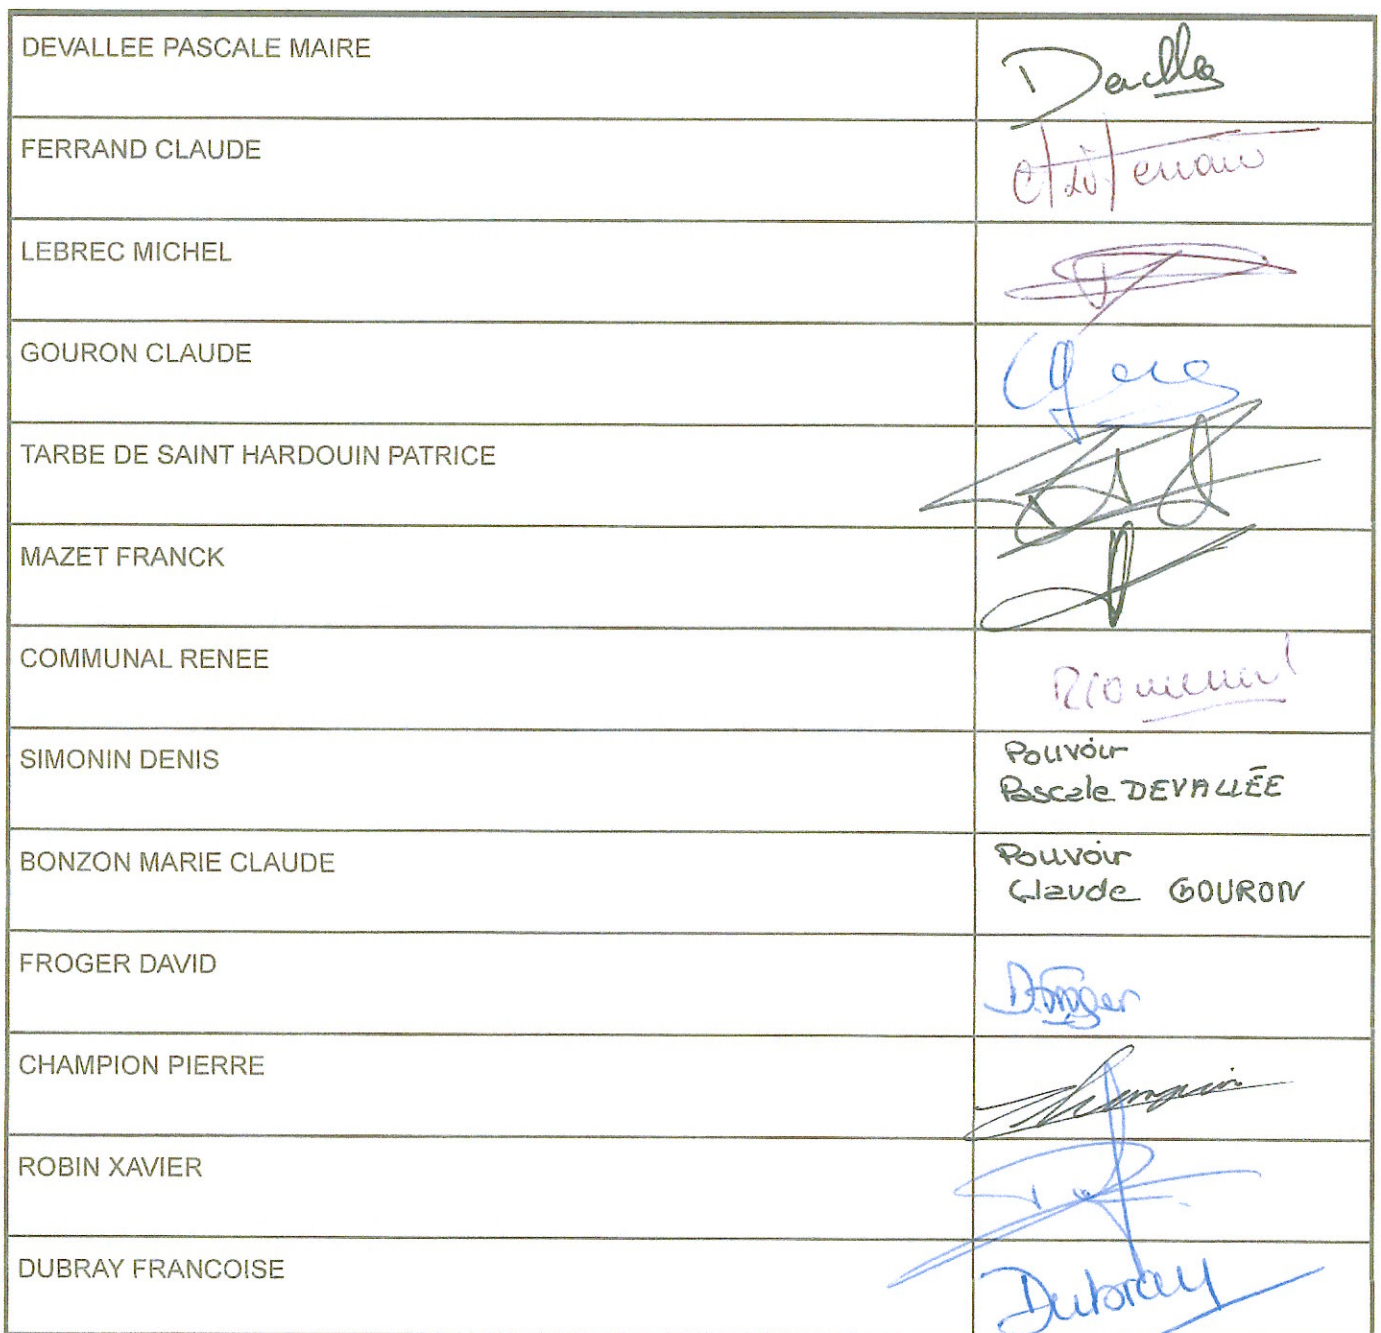 DEVALLEE PASCALE MAIRE
FERRAND CLAUDE
LEBREC MICHEL
GOURON CLAUDE
TARBE DE SAINT HARDOUIN PATRICE
MAZET FRANCK
COMMUNAL RENEE
SIMONIN DENIS
Pouvoir
Pascale DEVALLÉE
BONZON MARIE CLAUDE
Pouvoir
Claude GOURON
FROGER DAVID
D.Froger
CHAMPION PIERRE
ROBIN XAVIER
DUBRAY FRANCOISE
Dubray